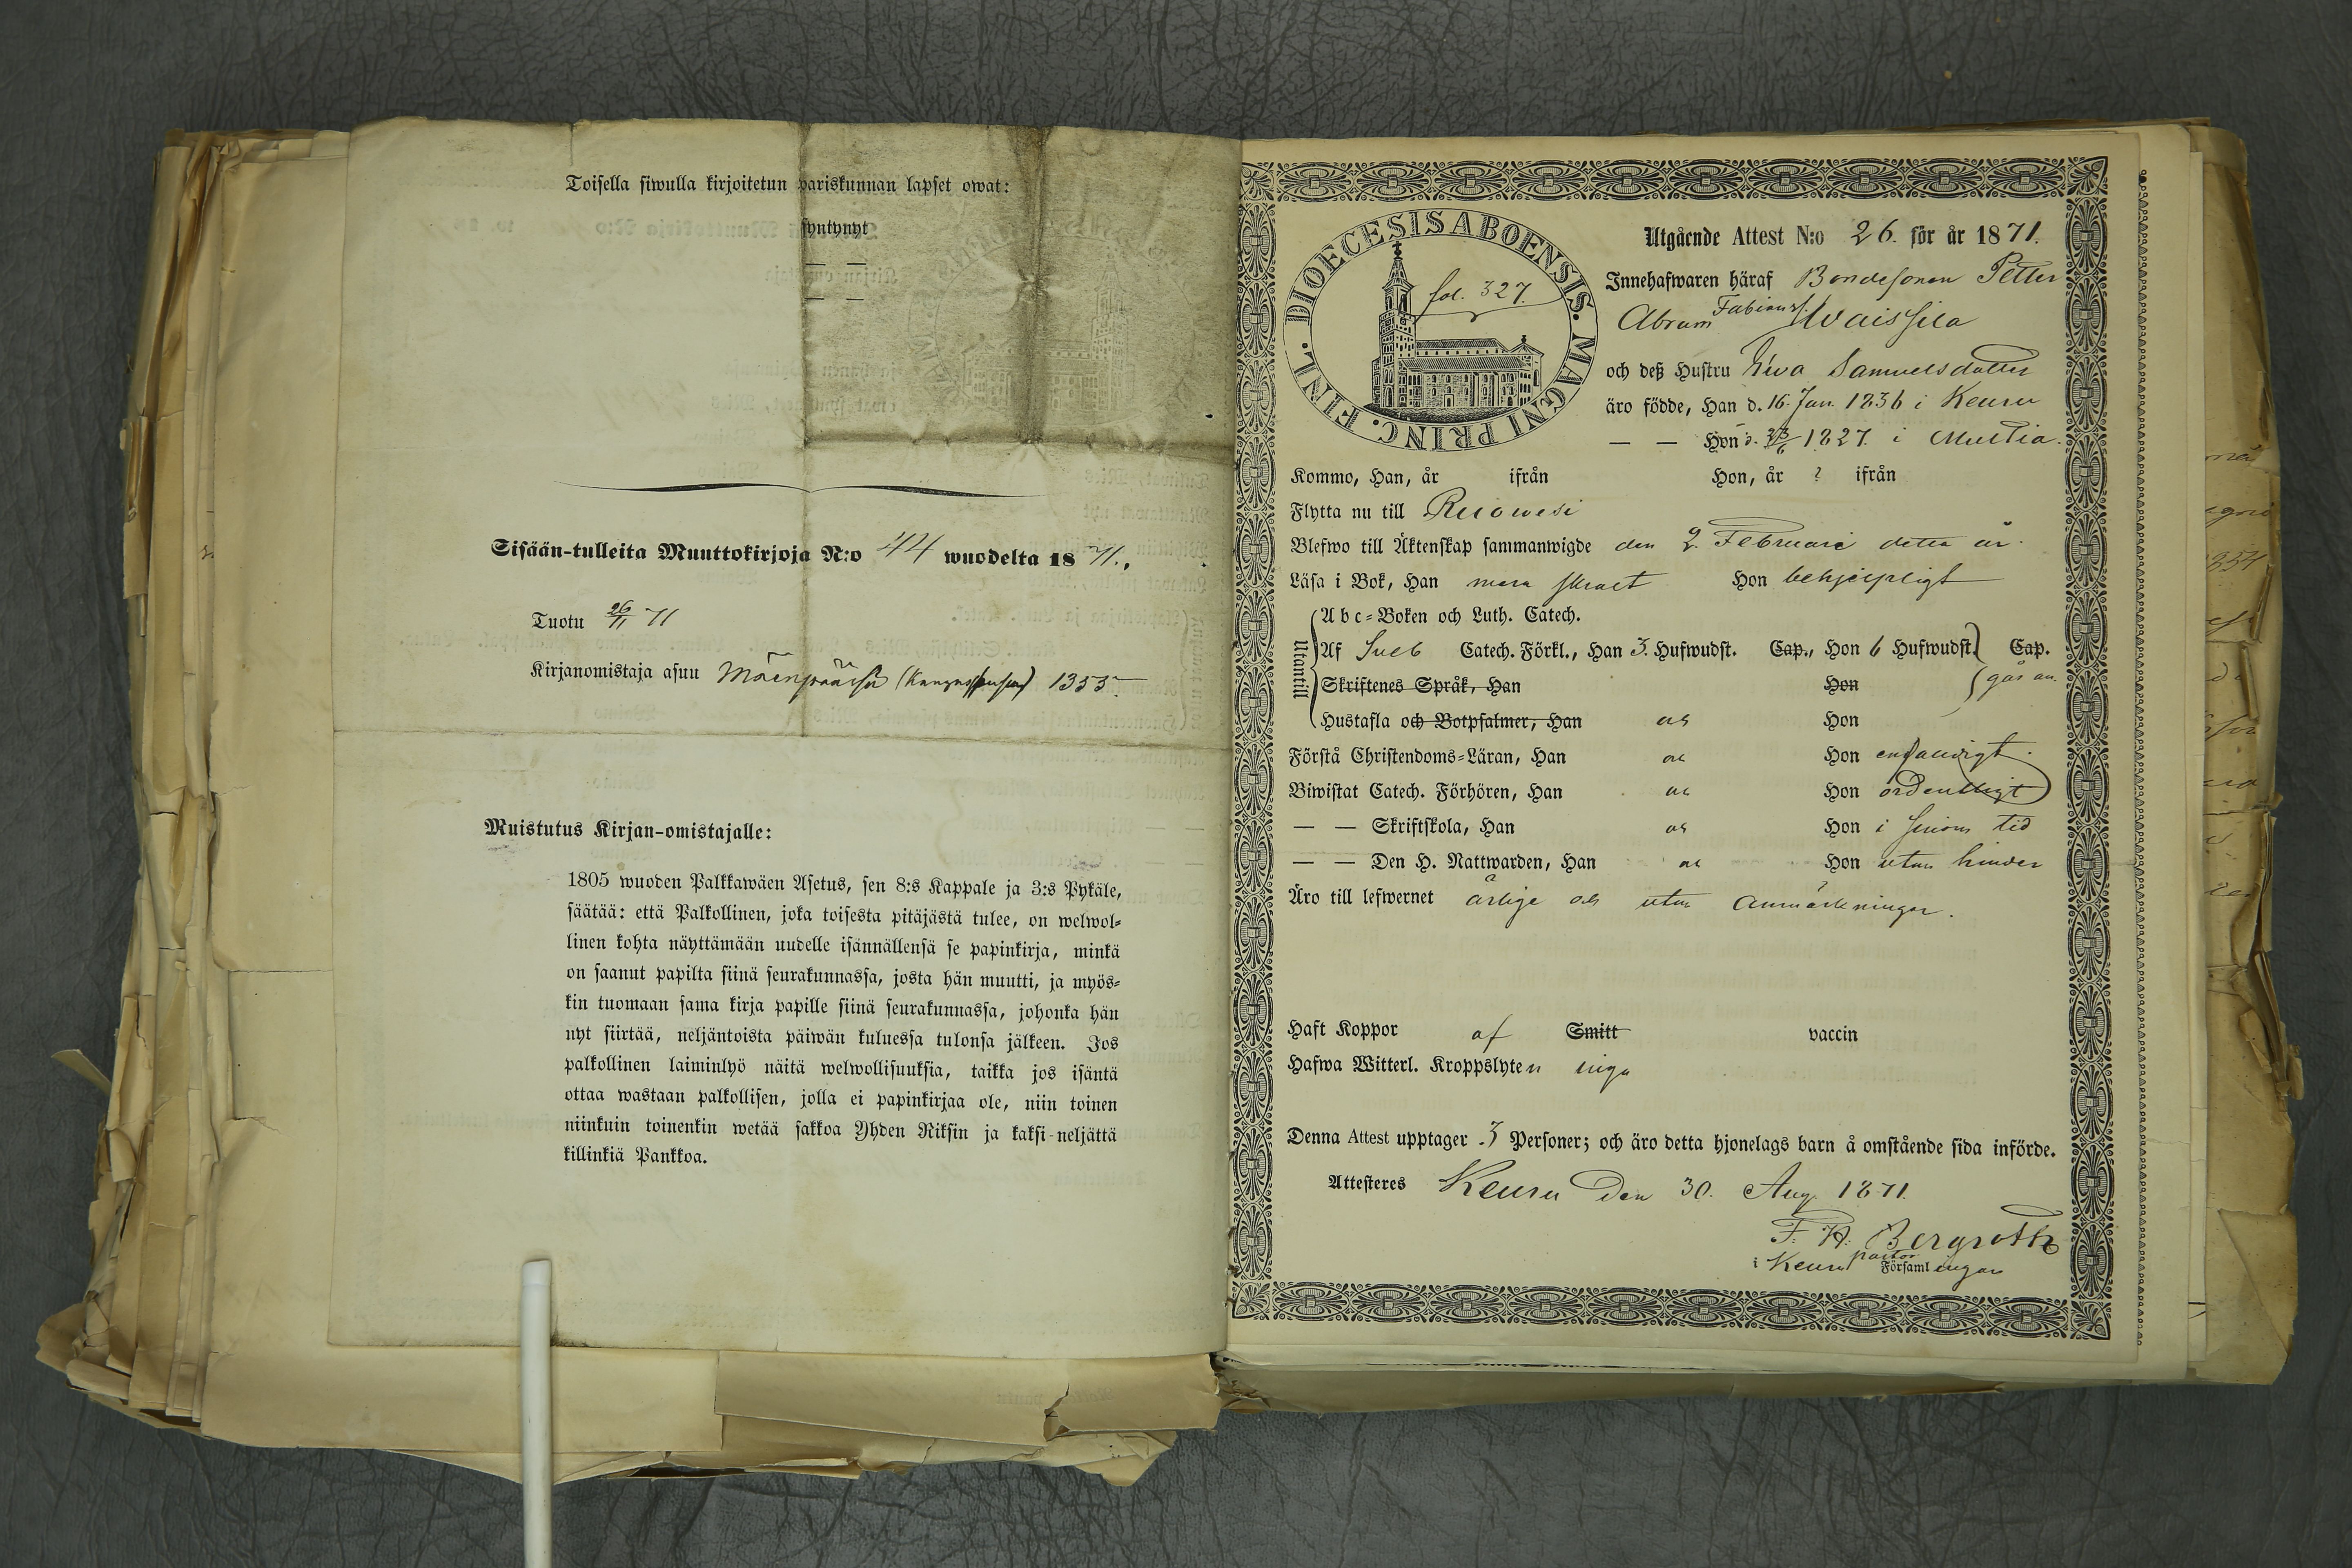 Toisella siwulla kirjoitetun pariskunnan lapset owat:
syntynyt
— —
— —
Sisään-tulleita Muuttokirjoja N:o 44 wuodelta 1871.
Tuotu 26/11 71
Kirjanomistaja asuu Mäenpäässä 1353
Muistutus Kirjan-omistajalle:
1805 wuoden Palkkawäen Asetus, sen 8:s Kappale ja 3:s Pykäle,
säätää: että Palkollinen, joka toisesta pitäjästä tulee, on welwol-
linen kohta näyttämään uudelle isännällensä se papinkirja, minkä
on saanut papilta siinä seurakunnassa, josta hän muutti, ja myös-
kin tuomaan sama kirja papille siinä seurakunnassa, johonka hän
nyt siirtää, neljäntoista päiwän kuluessa tulonsa jälkeen. Jos
palkollinen laiminlyö näitä welwollisuuksia, taikka jos isäntä
ottaa wastaan palkollisen, jolla ei papinkirjaa ole, niin toinen
niinkuin toinenkin wetää sakkoa Yhden Riksin ja kaksi-neljättä
killinkiä Pankkoa.
DIOECESIS ABOENSIS. MAGNI PRINC. FINL.
fol. 327.
Utgående Attest N:o 26. för år 1871.
Innehafwaren häraf Bondesonen Petter
Abram Fabianss. Waissila
och deß Hustru Ewa Samuelsdotter
äro födde, Han d. 16 Jan. 1836 i Keuru
— — Hon d. 23/6 1827. i Multia.
Kommo, Han, år ifrån Hon, år ? ifrån
Flytta nu till Ruowesi
Blefwo till Äktenskap sammanwigde den 2. Februari detta år.
Läsa i Bok, Han Hon behjelpligt
Utantill
Abc-Boken och Luth. Catech.
Af Sveb Catech. Förkl., Han 3. Hufwudst. Cap., Hon 6 Hufwudst. Cap.
gås an.
Skriftenes Språk, Han Hon
Hustafla och Botpsalmer, Han och Hon
Förstå Christendoms-Läran, Han och Hon enfaldigt.
Biwistat Catech. Förhören, Han och Hon ordentligt
— — Skriftskola, Han och Hon i sinom tid
— — Den H. Nattwarden, Han och Hon utan hinder
Äro till lefwernet ärlige och utan anmärkningar.
Haft Koppor af Smitt vaccin
Hafwa Witterl. Kroppslyten inga
Denna Attest upptager 3 Personer; och äro detta hjonelags barn å omstående sida införde.
Attesteres Keuru den 30. Aug. 1871.
F. W. Bergroth
pastor
i Keuru Församlingar